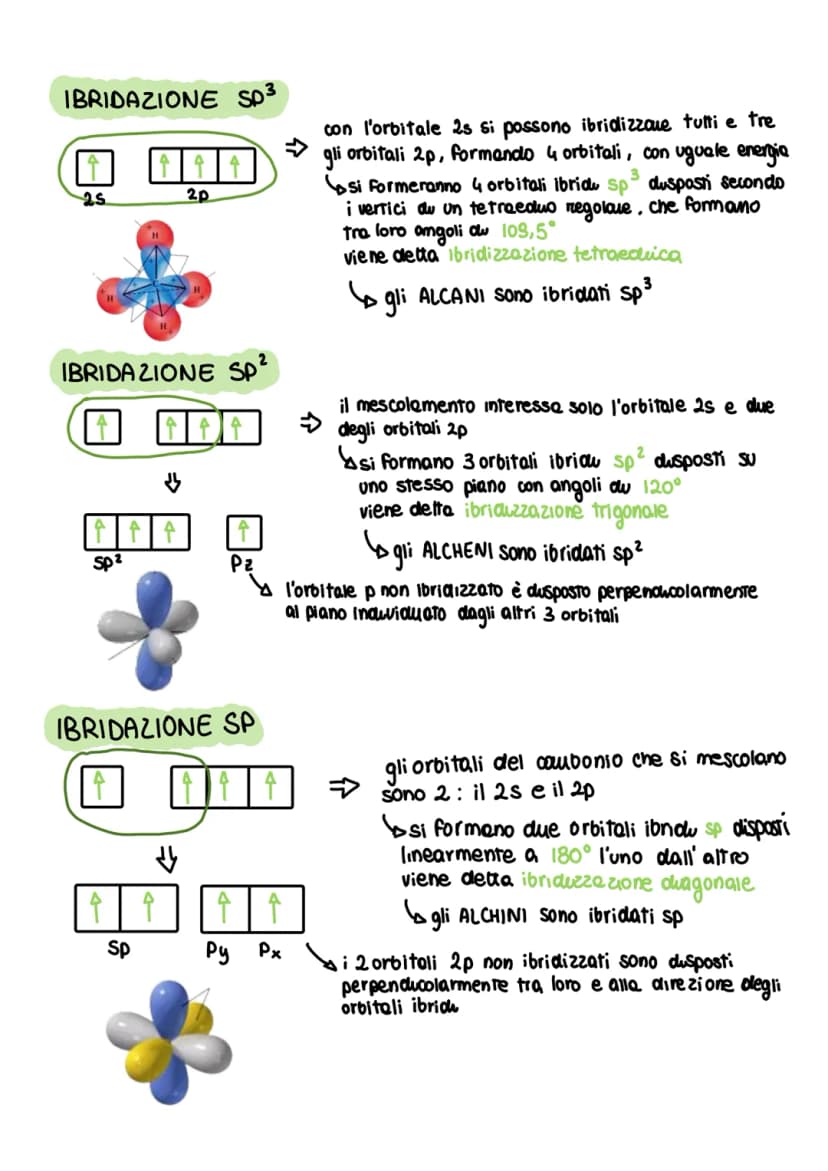 IBRIDAZIONE SP³
2s
2p
con l'orbitale 2s si possono ibridizzare tutti e tre
gli orbitali 2p, formando 4 orbitali, con uguale energia
si formeranno 4 orbitali ibridi sp³ disposti secondo
i vertici di un tetraedro regolare, che formano
tra loro angoli di 109,5°
viene detta ibridizzazione tetraedrica
gli ALCANI sono ibridati sp³
H
H
C
H
H
IBRIDAZIONE SP²
il mescolamento interessa solo l'orbitale 2s e due
degli orbitali 2p
si formano 3 orbitali ibridi sp² disposti su
uno stesso piano con angoli di 120°
viene detta ibridizzazione trigonale
gli ALCHENI sono ibridati sp²
sp²
Pz
l'orbitale p non ibridizzato è disposto perpendicolarmente
al piano individuato dagli altri 3 orbitali
IBRIDAZIONE SP
gli orbitali del carbonio che si mescolano
sono 2 : il 2s e il 2p
si formano due orbitali ibridi sp disposti
linearmente a 180° l'uno dall'altro
viene detta ibridizzazione diagonale
gli ALCHINI sono ibridati sp
Sp
Py Px
i 2 orbitali 2p non ibridizzati sono disposti
perpendicolarmente tra loro e alla direzione degli
orbitali ibridi